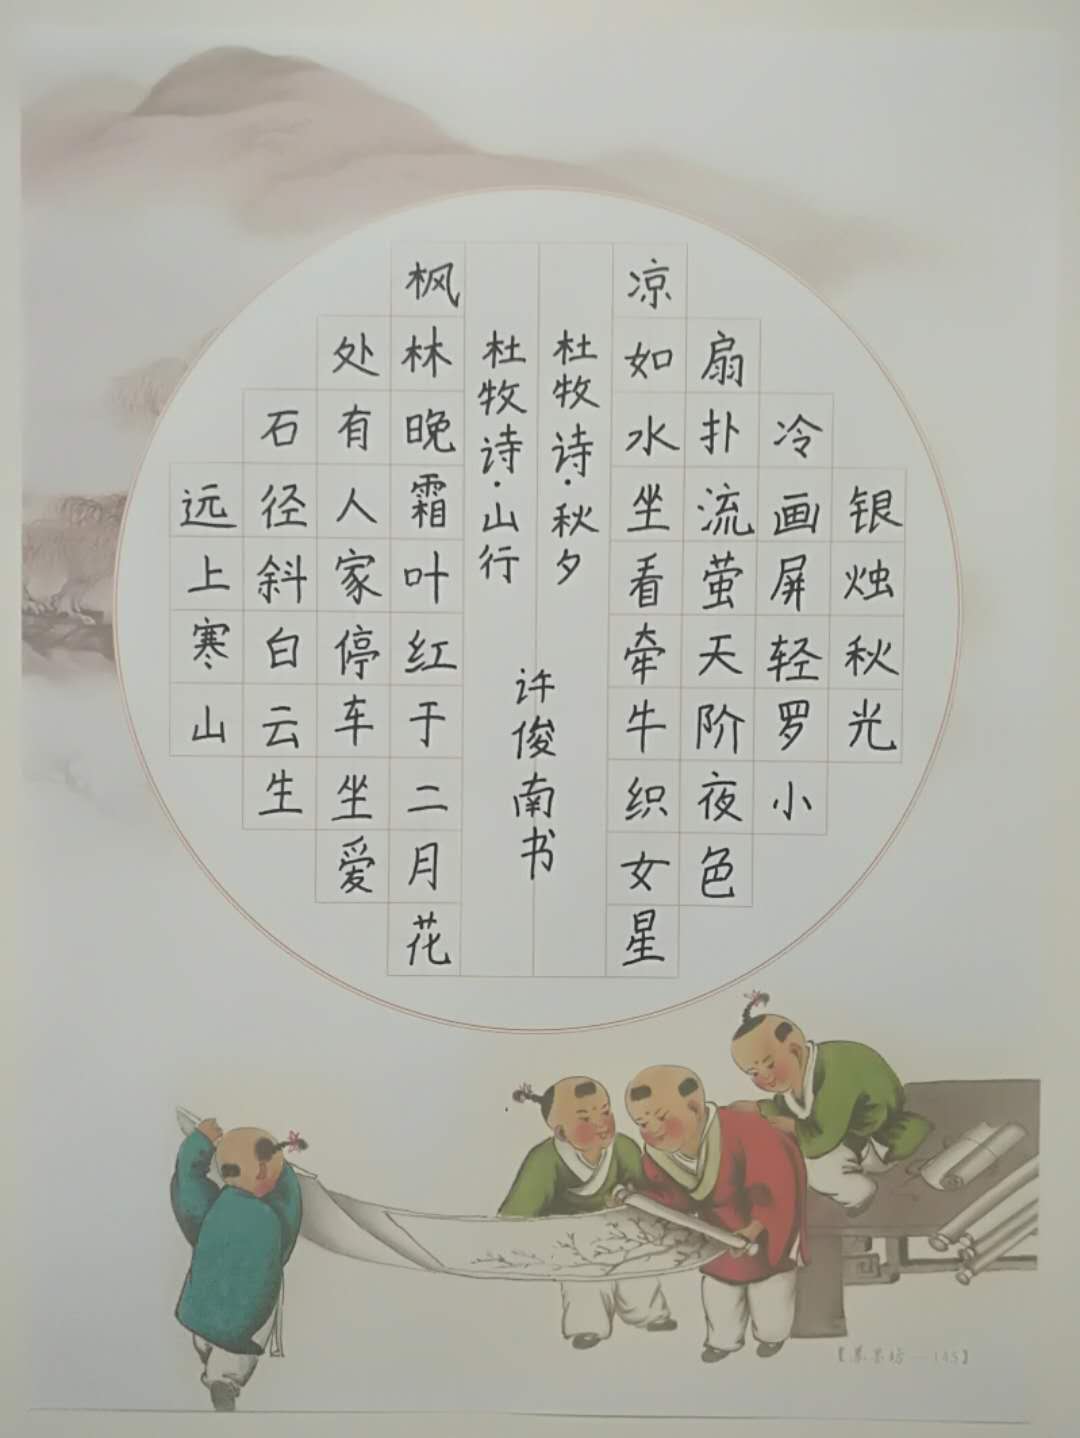 银烛秋光
冷画屏轻罗小
扇扑流萤天阶夜色
凉如水坐看牵牛织女星
杜牧诗·秋夕
远上寒山
石径斜白云生
处有人家停车坐爱
枫林晚霜叶红于二月花
杜牧诗·山行
许俊南书